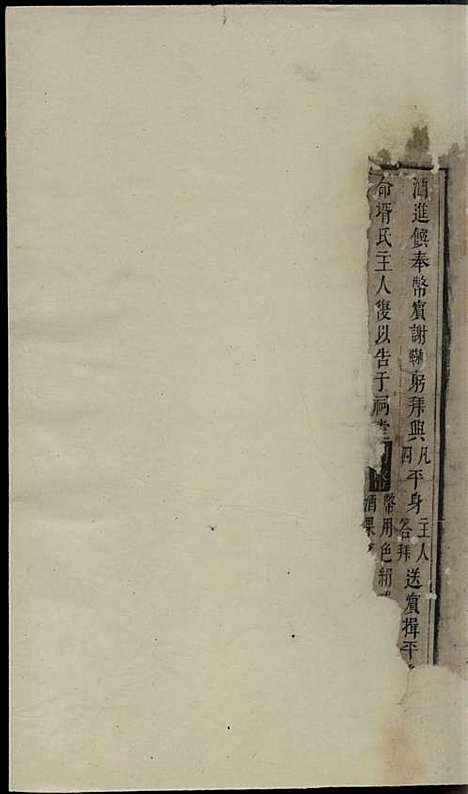 酒進饌奉幣賓謝鞠躬拜興凡四平身主人答拜送賓揖平
命壻氏主人復以告于祠堂
幣用色絹
酒果